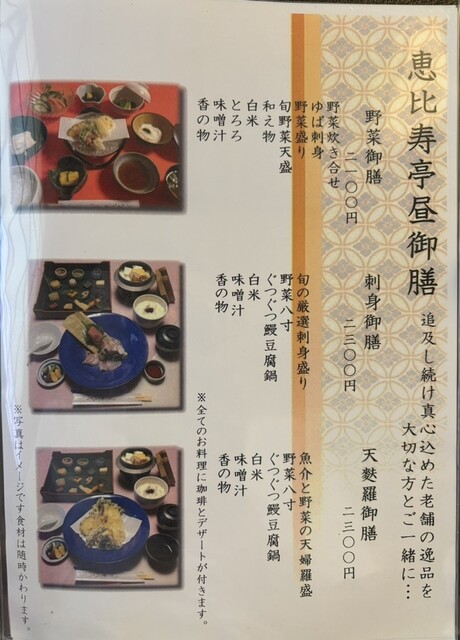 恵比寿亭昼御膳
追及し続け真心込めた老舗の逸品を
大切な方とご一緒に…
野菜御膳
二一〇〇円
野菜炊き合せ
ゆば刺身
野菜盛り
旬野菜天盛
和え物
白米
とろろ
味噌汁
香の物
刺身御膳
二三〇〇円
旬の厳選刺身盛り
野菜八寸
ぐつぐつ鰻豆腐鍋
白米
味噌汁
香の物
天麩羅御膳
二三〇〇円
魚介と野菜の天婦羅盛
野菜八寸
ぐつぐつ鰻豆腐鍋
白米
味噌汁
香の物
※全てのお料理に珈琲とデザートが付きます。
※写真はイメージです食材は随時かわります。